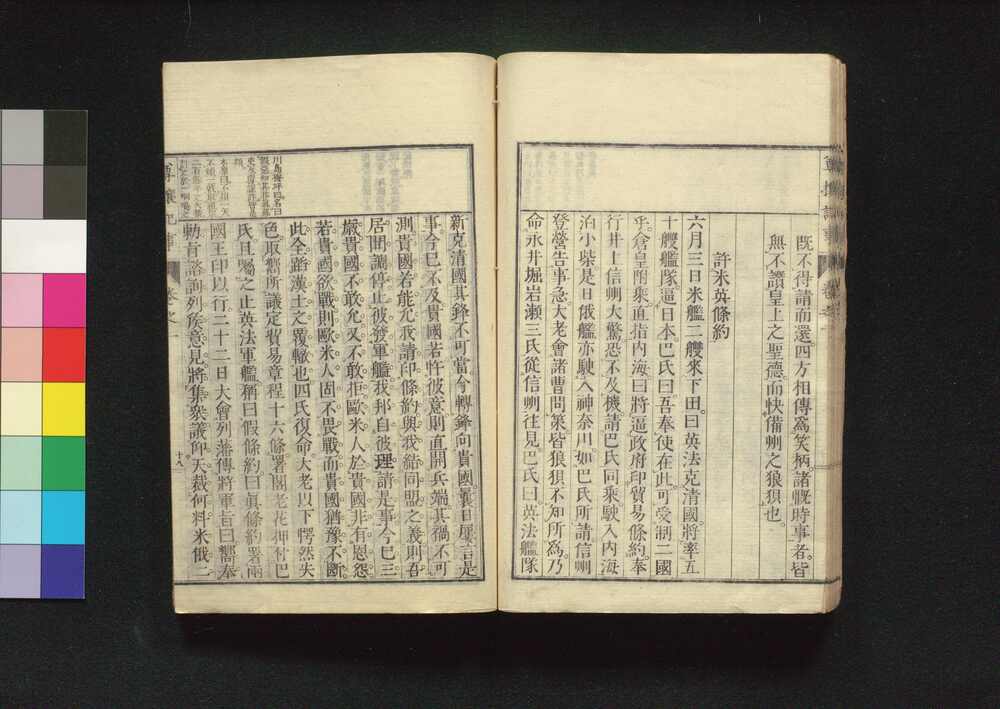 既不得請而還。四方相傳爲笑柄。諸慨時事者。皆
無不讚皇上之聖德。而快備州之狼狽也。
許米英條約
六月三日米艦二艘來下田。曰英法克清國。將率五
十艘艦隊。逼日本。巴氏曰。吾奉使在此。可受制二國
乎。倉皇附乘。直指内海。曰將逼政府。印貿易條約。奉
行井上信州大驚。恐不及機。請巴氏同乘。駛入内海
泊小柴。是日俄艦亦駛入神奈川。如巴氏所請。信州
登營告事急。大老會諸曹問策。皆狼狽不知所爲。乃
命永井堀岩瀬三氏從信州往見巴氏。曰英法艦隊
新克清國。其鋒不可當。今轉鋒向貴國。曩日屢言是
事。今已不及。貴國若忤彼意。則直開兵端。其禍不可
測。貴國若能允我請。印條約。與我結同盟之義。則吾
居間講停。止彼發軍艦。我邦自彼理請是事。今已三
嚴。貴國不敢允。又不敢拒。歐米人於貴國。非有恩怨。
若貴國欲戰。則歐米人固不畏戰。而貴國猶豫不斷。
此全蹈漢土之覆轍也。四氏復命。大老以下愕然失
色。取嚮所議定貿易章程十六條。署閣老花押付巴
氏。且囑之止英法軍艦。猶曰假條約。曰眞條約。署兩
國王印以行。二十二日大會列藩。傳將軍旨曰。嚮奉
勅旨。諮詢列侯意見。將集衆議。仰天裁。何料米俄二
川島梅坪曰。名曰
尊攘紀事
卷之一
十八